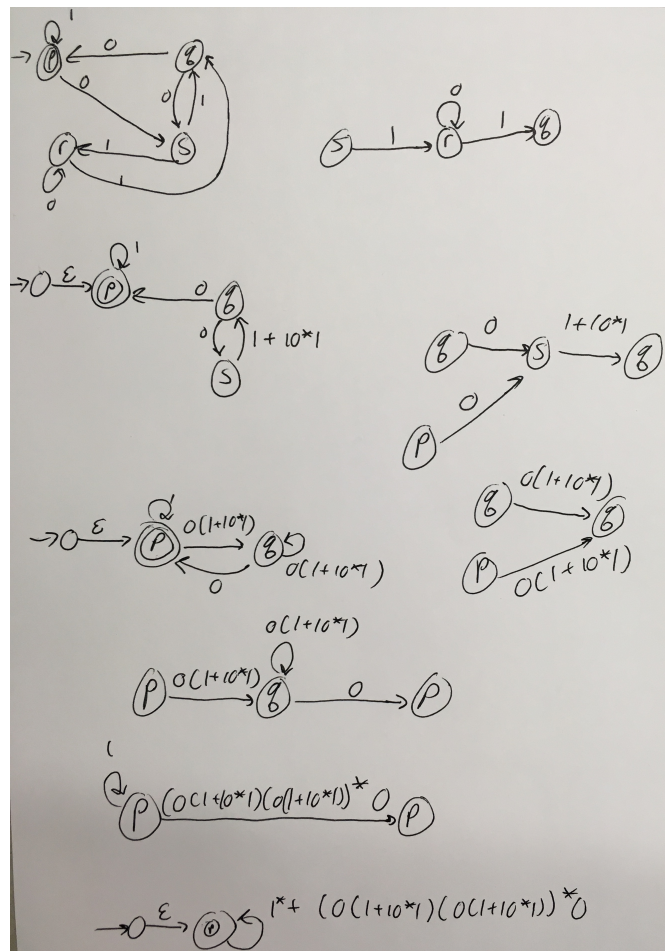 1
P 0 q
0 0 1
r 1 S
0 1
S 1 r 0 1 q
ε P 1 0 q
0 1 + 10*1
S
q 0 S 1+10*1 q
P 0
ε P 1 0(1+10*1) q
0 0(1+10*1)
q 0(1+10*1) q
P 0(1+10*1)
0(1+10*1)
P 0(1+10*1) q 0 P
1
P (0(1+10*1)(0(1+10*1))* 0 P
ε P 1*+ (0(1+10*1)(0(1+10*1))*0